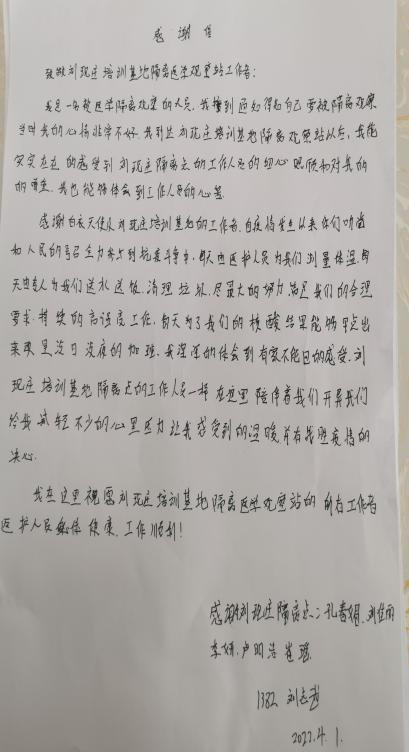 感谢信
致敬刘现庄培训基地隔离医学观察站工作者:
我是一名被医学隔离观察的人员,我接到通知得知自己要被隔离观察
当时我的心情非常不好,我到刘现庄培训基地隔离观察站以后,我能
实实在在的感受到刘现庄隔离点的工作人员的细心照顾和对我的
的尊重,我也能够体会到工作人员的心善
感谢白衣天使及刘现庄培训基地的工作者,自疫情发生以来你们响应
人民的号召全力参与到抗疫斗争中,每天由医护人员为我们测量体温,每
天由专人为我们送水送饭、清理垃圾,尽最大的努力满足我们的合理
要求,持续的高强度工作,每天为了我们的核酸结果能够早点出
来夜里没日没夜的加班,我深深的体会到有家不能回的感受,刘
现庄培训基地隔离点的工作人员一样在这里陪伴着我们开导我们
给我减轻不少的心里压力让我感受到的温暖,并有战胜疫情的
决心.
我在这里祝愿刘现庄培训基地隔离医学观察站的所有工作者
医护人员身体健康,工作顺利!
感谢刘现庄隔离点:孔春娟、刘佳丽
李妍、卢明浩
1382 刘志
2022.4.1.